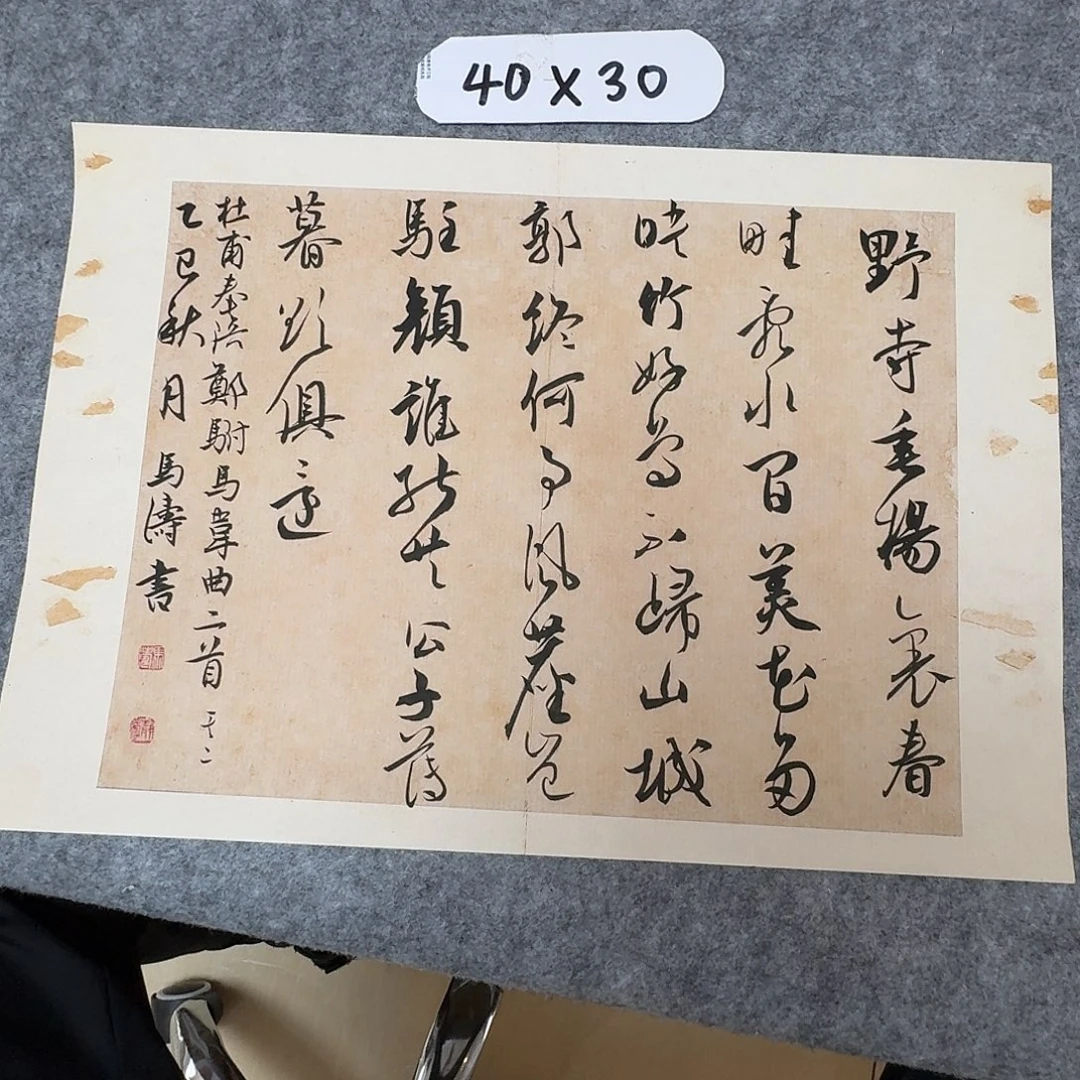 40 X 30
野寺垂楊裏春
畦亂水間美花多
映竹好鳥不歸山城
郭終何事風塵豈
駐顏誰能共公子薄
暮欲俱還
杜甫奉陪鄭駙馬韋曲二首其二
乙巳秋月馬濤書